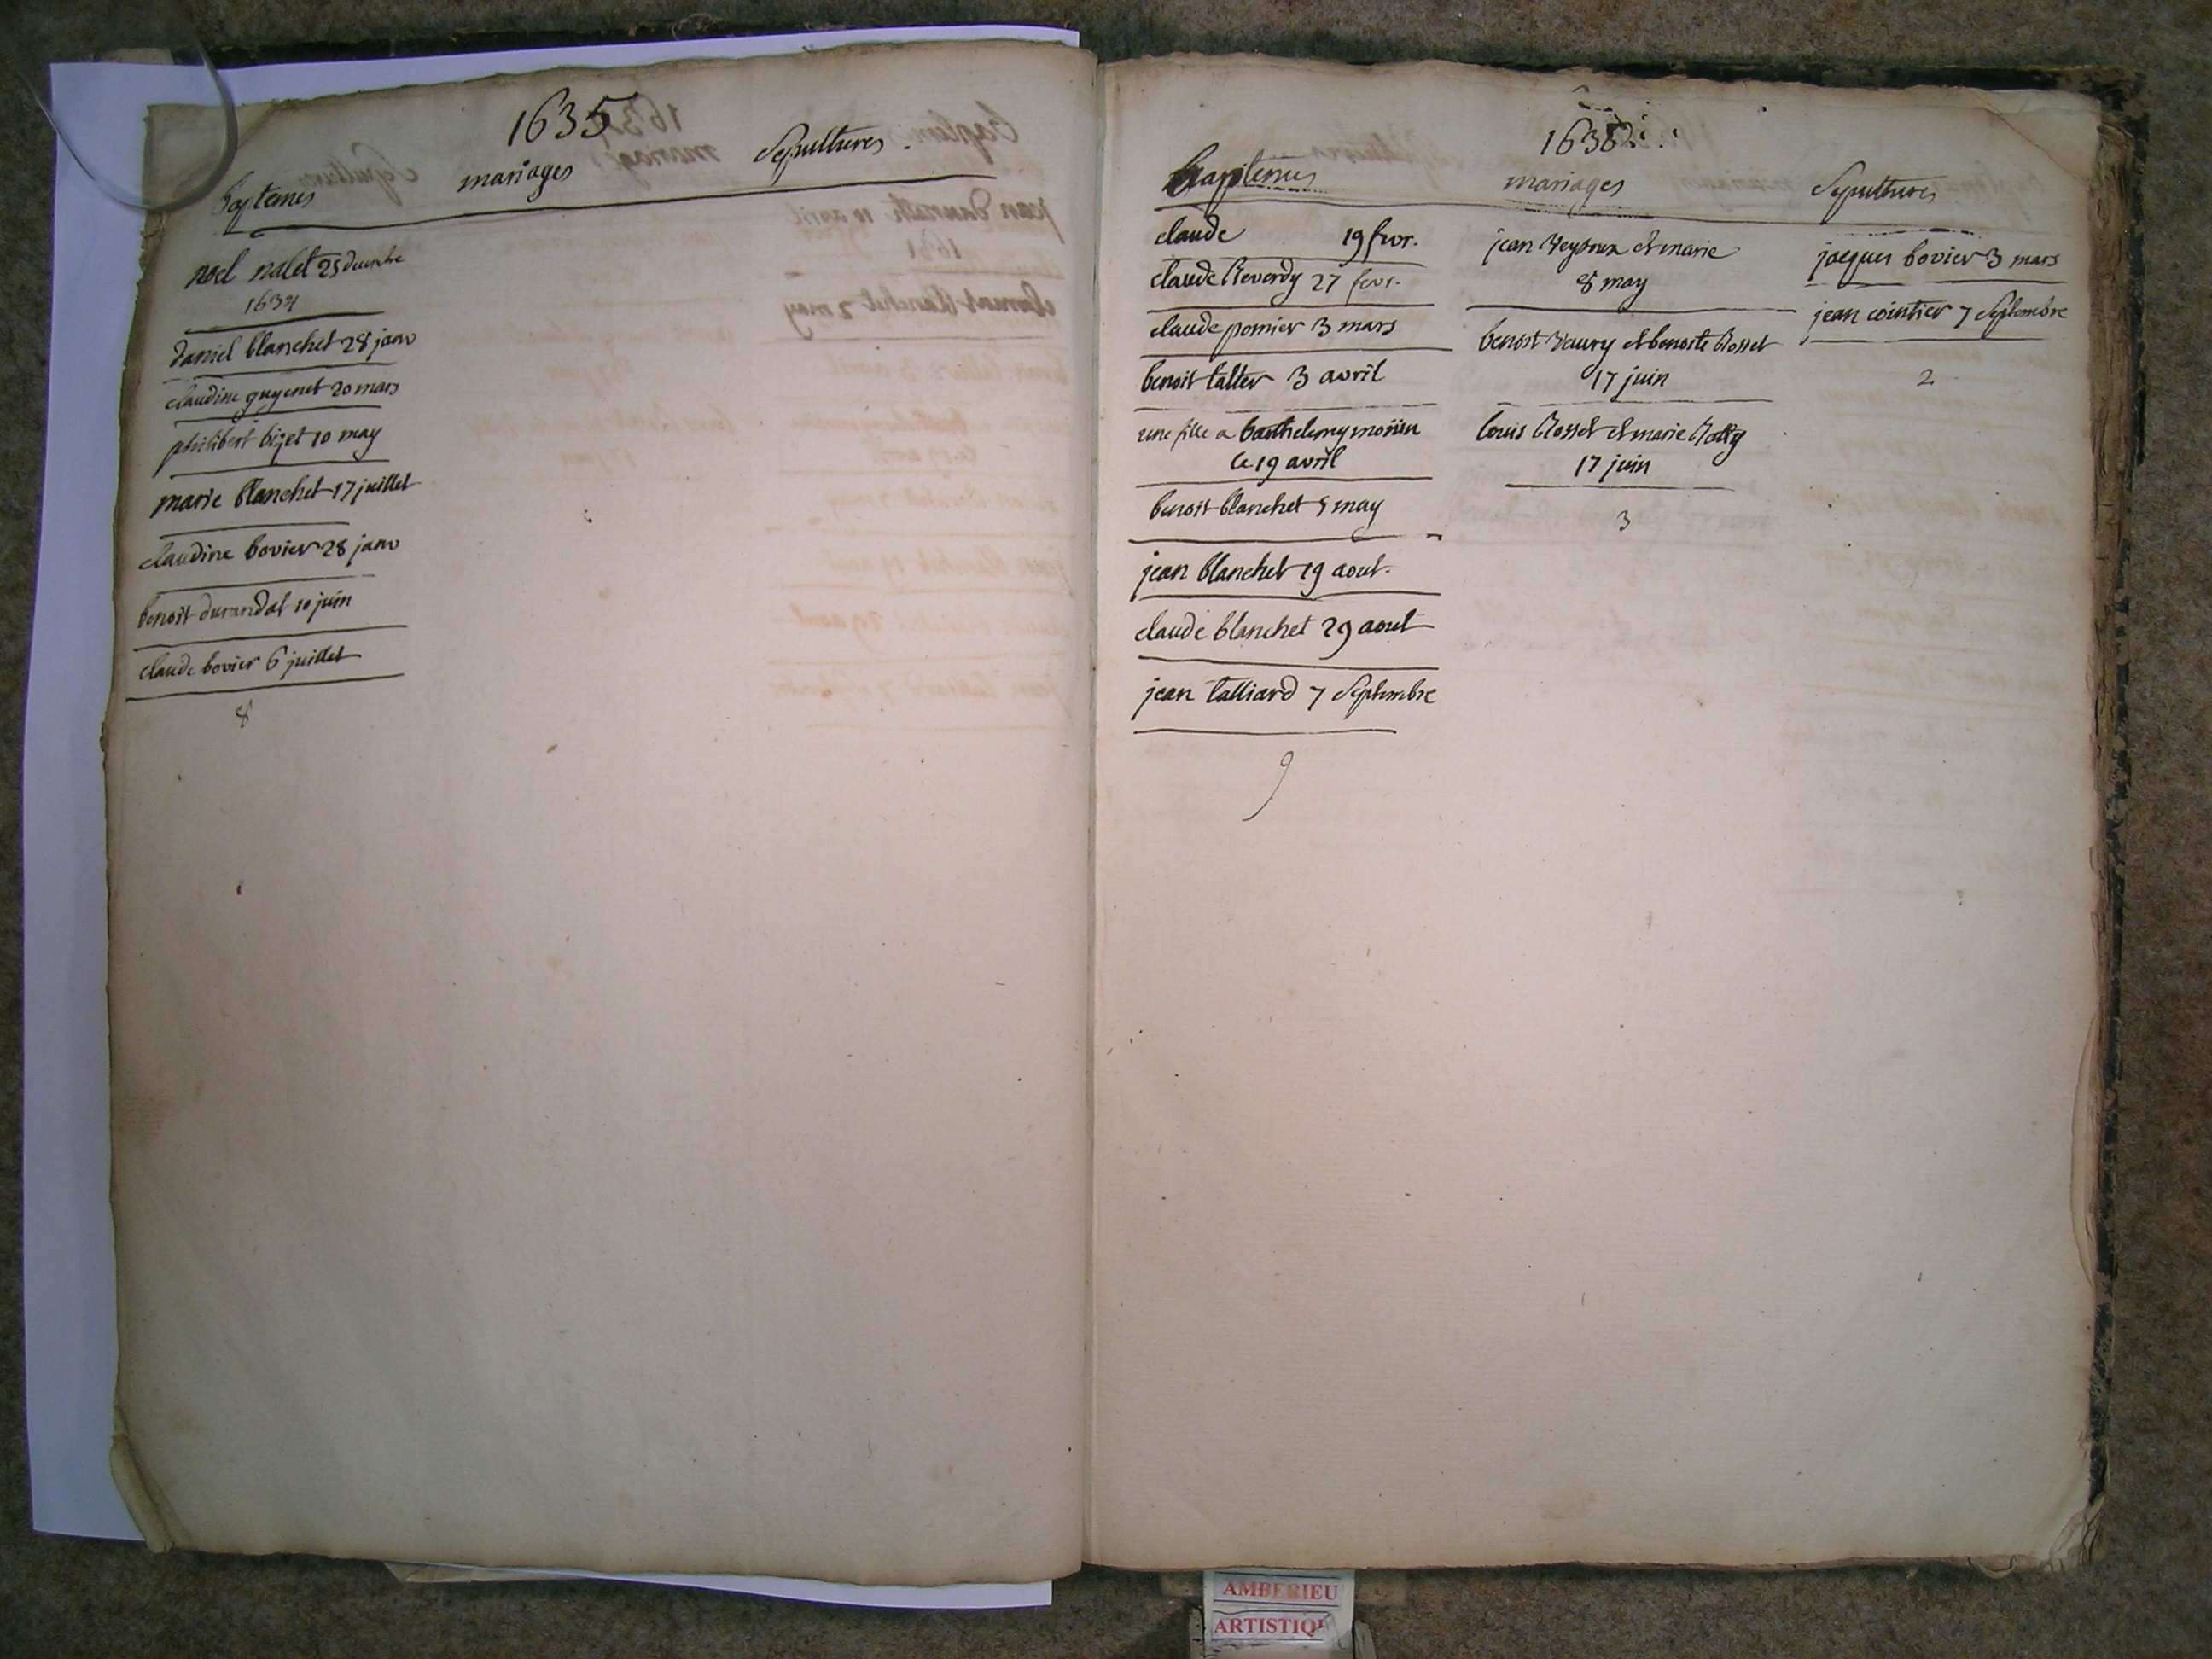 1635
Baptemes mariages Sepultures.
noel nalet 25 decembre
1634
daniel blanchet 28 janv
claudine guyenet 20 mars
philibert bizet 10 may
marie blanchet 17 juillet
claudine bovier 28 janv
benoit durandal 10 juin
claude bovier 6 juillet
8
Baptemes mariages Sepultures
claude 19 fevr.
claude Reverdy 27 fevr.
claude pomier 3 mars
benoit 3 avril
une fille a barthelemy
le 19 avril
benoit blanchet 5 may
jean blanchet 19 aout.
claude blanchet 29 aout
jean talliard 7 Septembre
9
jean et marie
8 may
benoit et benoite Rosset
17 juin
louis Rosset et marie
17 juin
3
jacques bovier 3 mars
jean cointier 7 Septembre
2
AMBERIEU